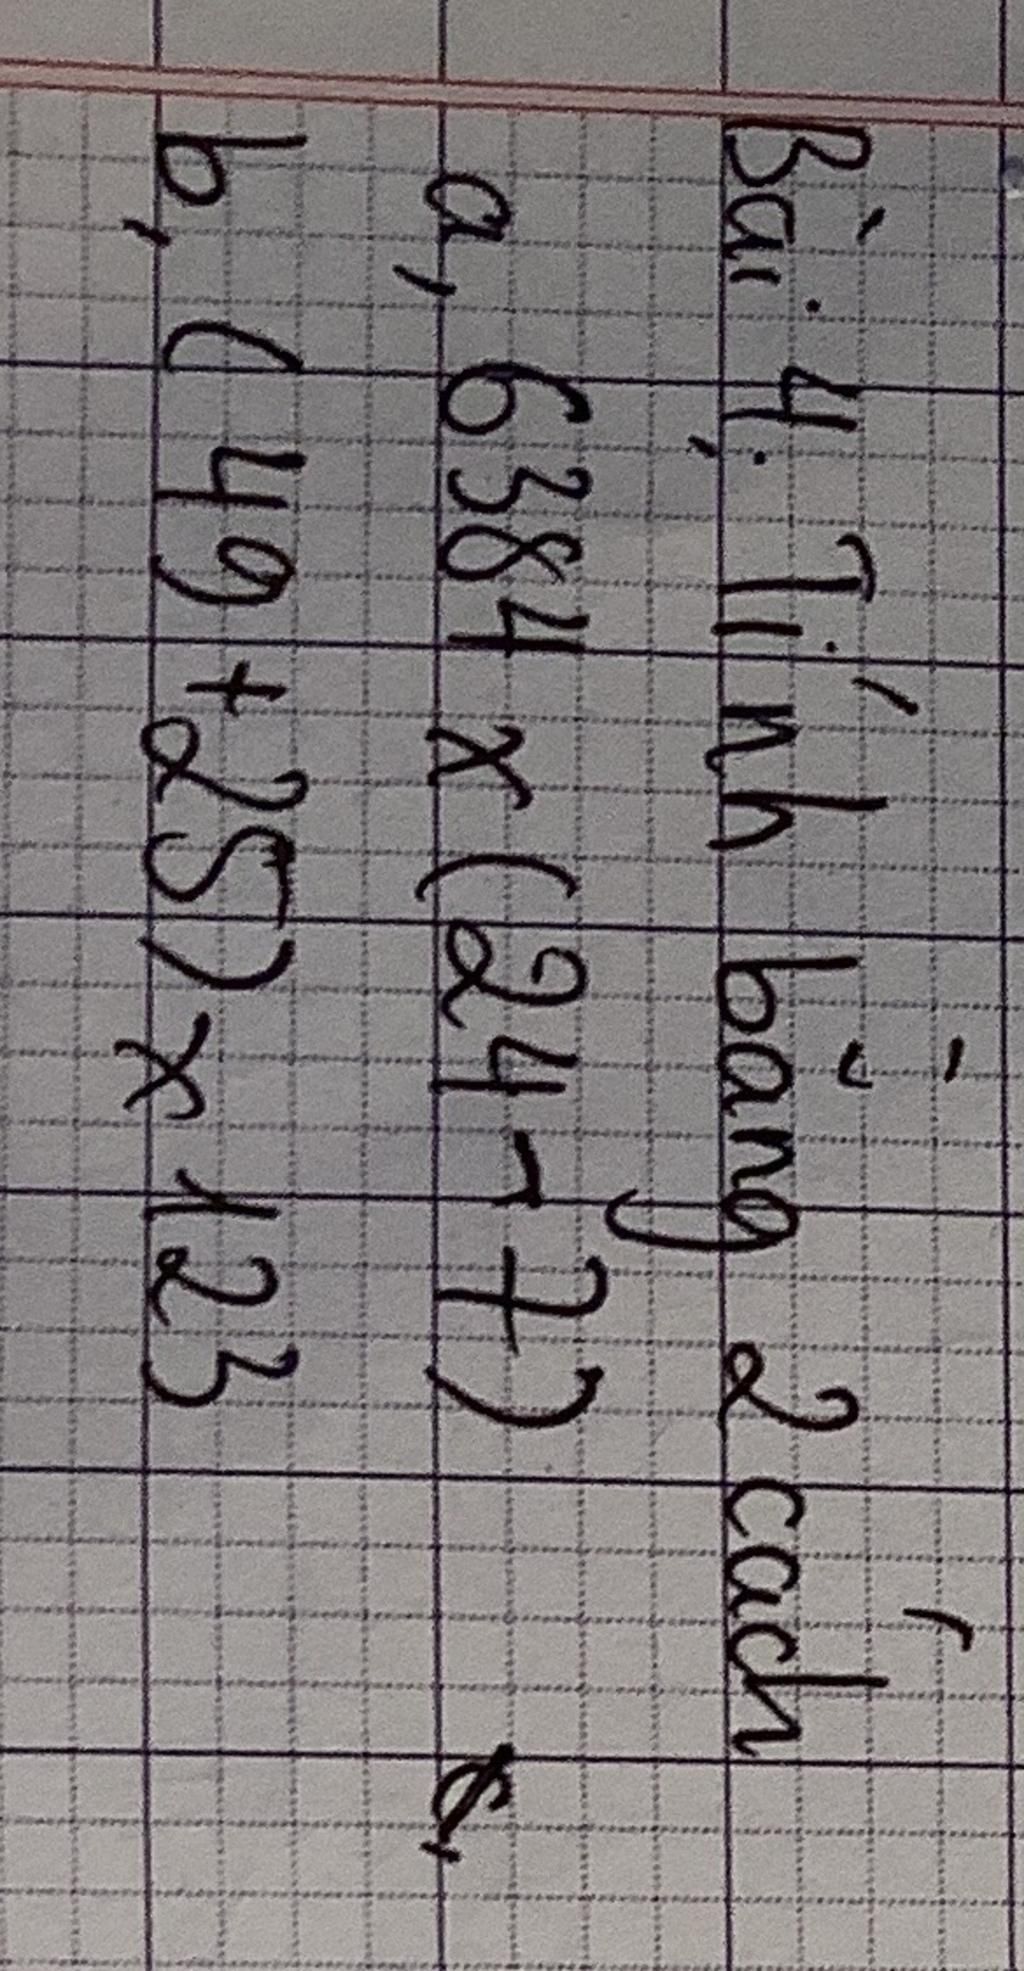 Bài 4: Tính bằng 2 cách
a, 6384 x (24 - 7)
b, (49 + 25) x 123